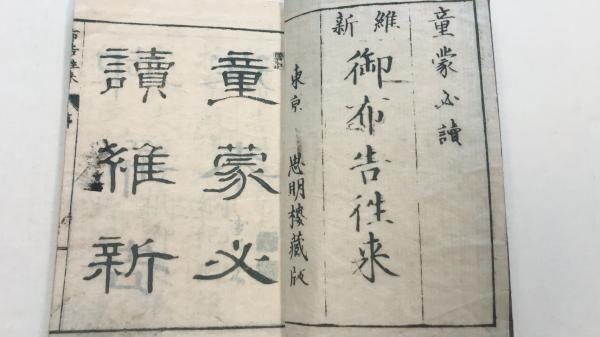 童蒙必讀
維新
御布告徃来
東京 思明樓藏版
童蒙必
讀維新